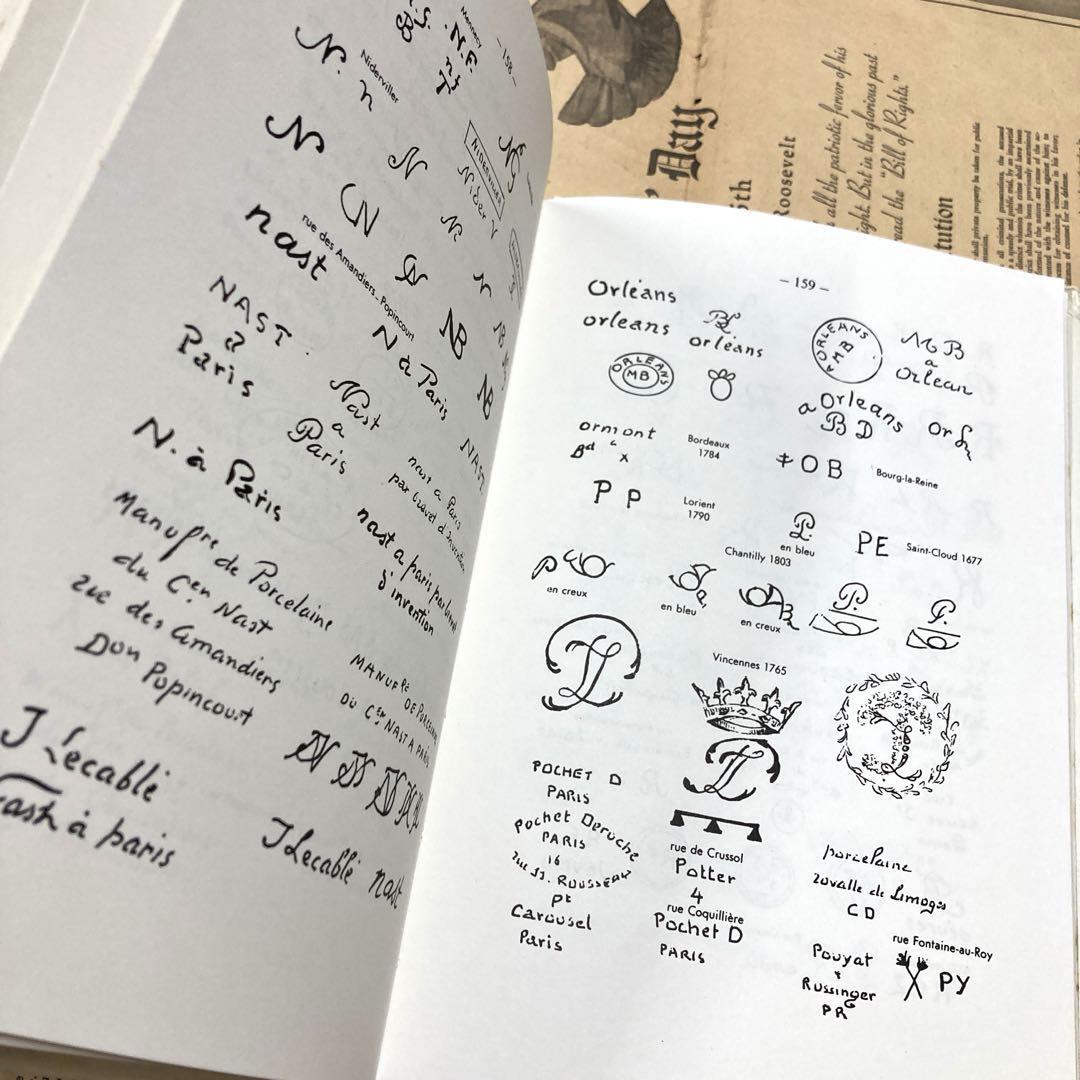 - 158 -
Mennecy
N.F.
B
Niderviller
N.
n
N
N
NIDERVILLER
Nider
N
nast
rue des Amandiers - Popincourt
NAST
à
Paris
N à Paris
NB
NB
Nast
a
Paris
NAST
N. à Paris
nast a Paris
par brevet d'invention
nast a paris par brevet
d'invention
Manufre de Porcelaine
du Cen Nast
rue des Amandiers
Don Popincourt
MANUFRE
DE PORCELAINE
DU Cen NAST A PARIS
J Lecablé
nast à paris
J Lecablé nast
- 159 -
Orléans
orleans
orléans
ORLEANS
MB
A ORLEANS
MB
MB
a
Orlean
a Orleans
BD
Orl
ormont
Bd a x
Bordeaux
1784
O B
Bourg-la-Reine
P P
Lorient
1790
P.
en bleu
PE
Saint-Cloud 1677
Chantilly 1803
P
en creux
en bleu
en creux
P.
P.
Vincennes 1765
POCHET D
PARIS
Pochet Deroche
PARIS
16
rue JJ. ROUSSEAU
Pt
Carousel
Paris
rue de Crussol
Potter
4
rue Coquillière
Pochet D
PARIS
porcelaine
royalle de Limoges
CD
rue Fontaine-au-Roy
Pouyat
&
Russinger
PR
PY
Day.
Roosevelt
all the patriotic fervor of his
right. But in the glorious past
read the "Bill of Rights."